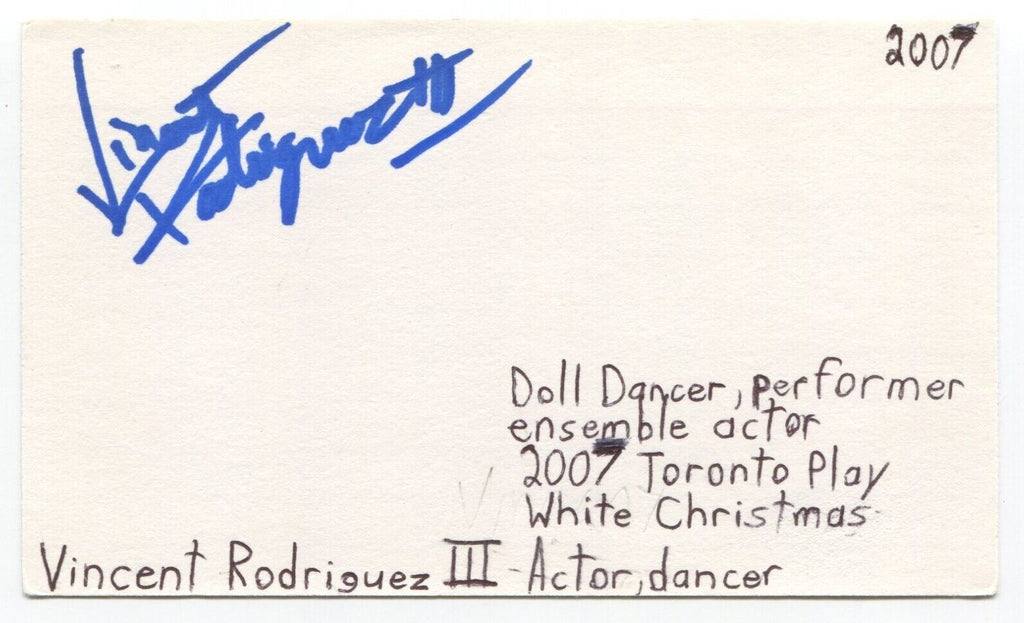 2007
Vincent
Rodriguez III
Doll Dancer, performer
ensemble actor
2007 Toronto Play
White Christmas
Vincent Rodriguez III - Actor, dancer